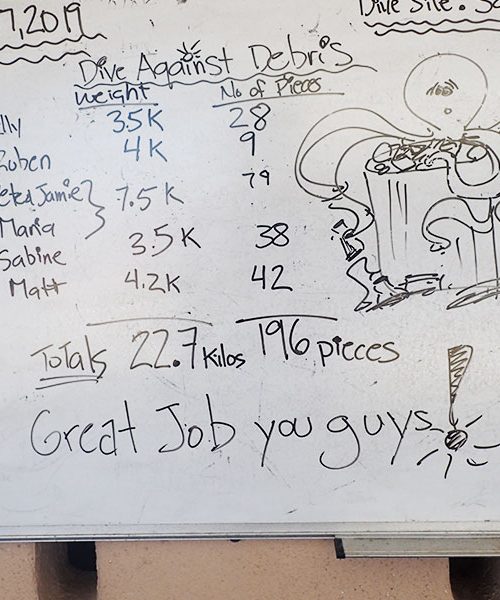 7, 2019
Dive Site: S
Dive Against Debris
Weight No of Pieces
lly 3.5K 28
Ruben 4K 9
ete & Jamie 7.5K 79
Maria
Sabine 3.5K 38
Matt 4.2K 42
Totals 22.7 Kilos 196 pieces
Great Job you guys!